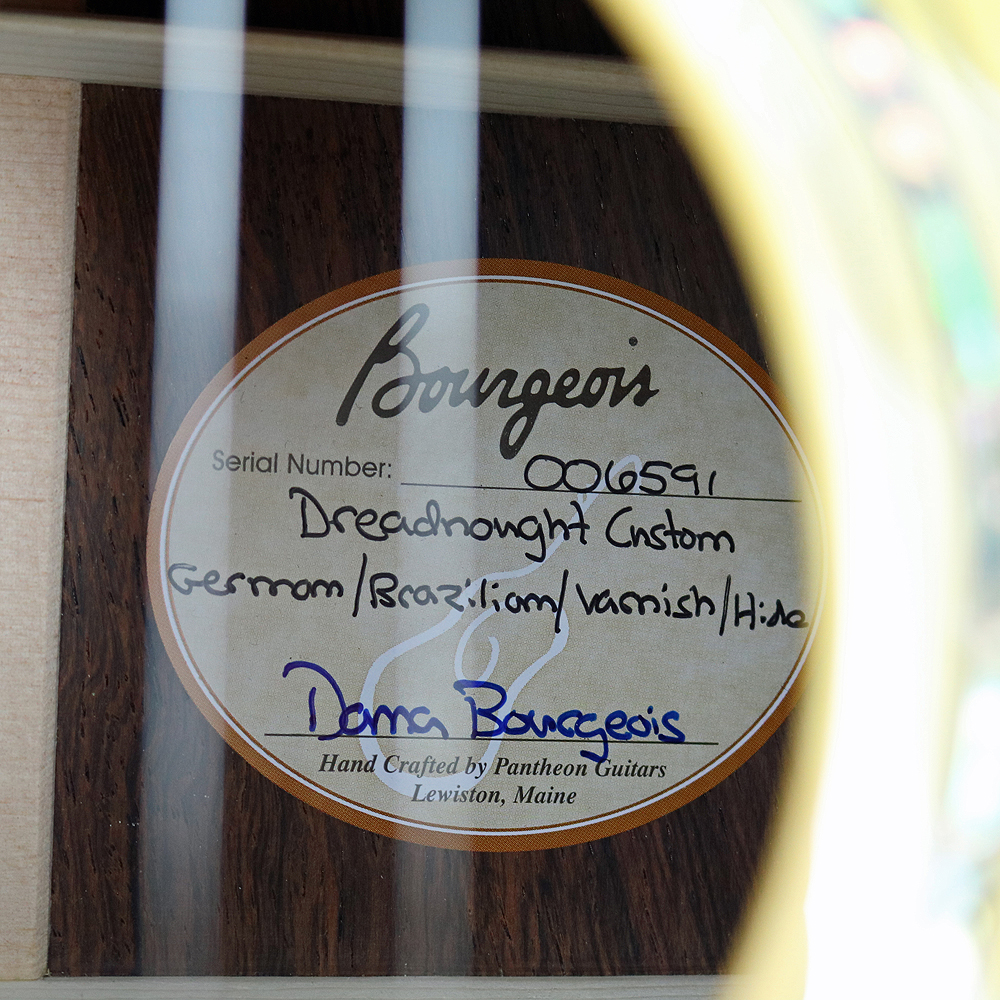 Bourgeois
Serial Number: 006591
Dreadnought Custom
German/Brazilian/Varnish/Hide
Dana Bourgeois
Hand Crafted by Pantheon Guitars
Lewiston, Maine